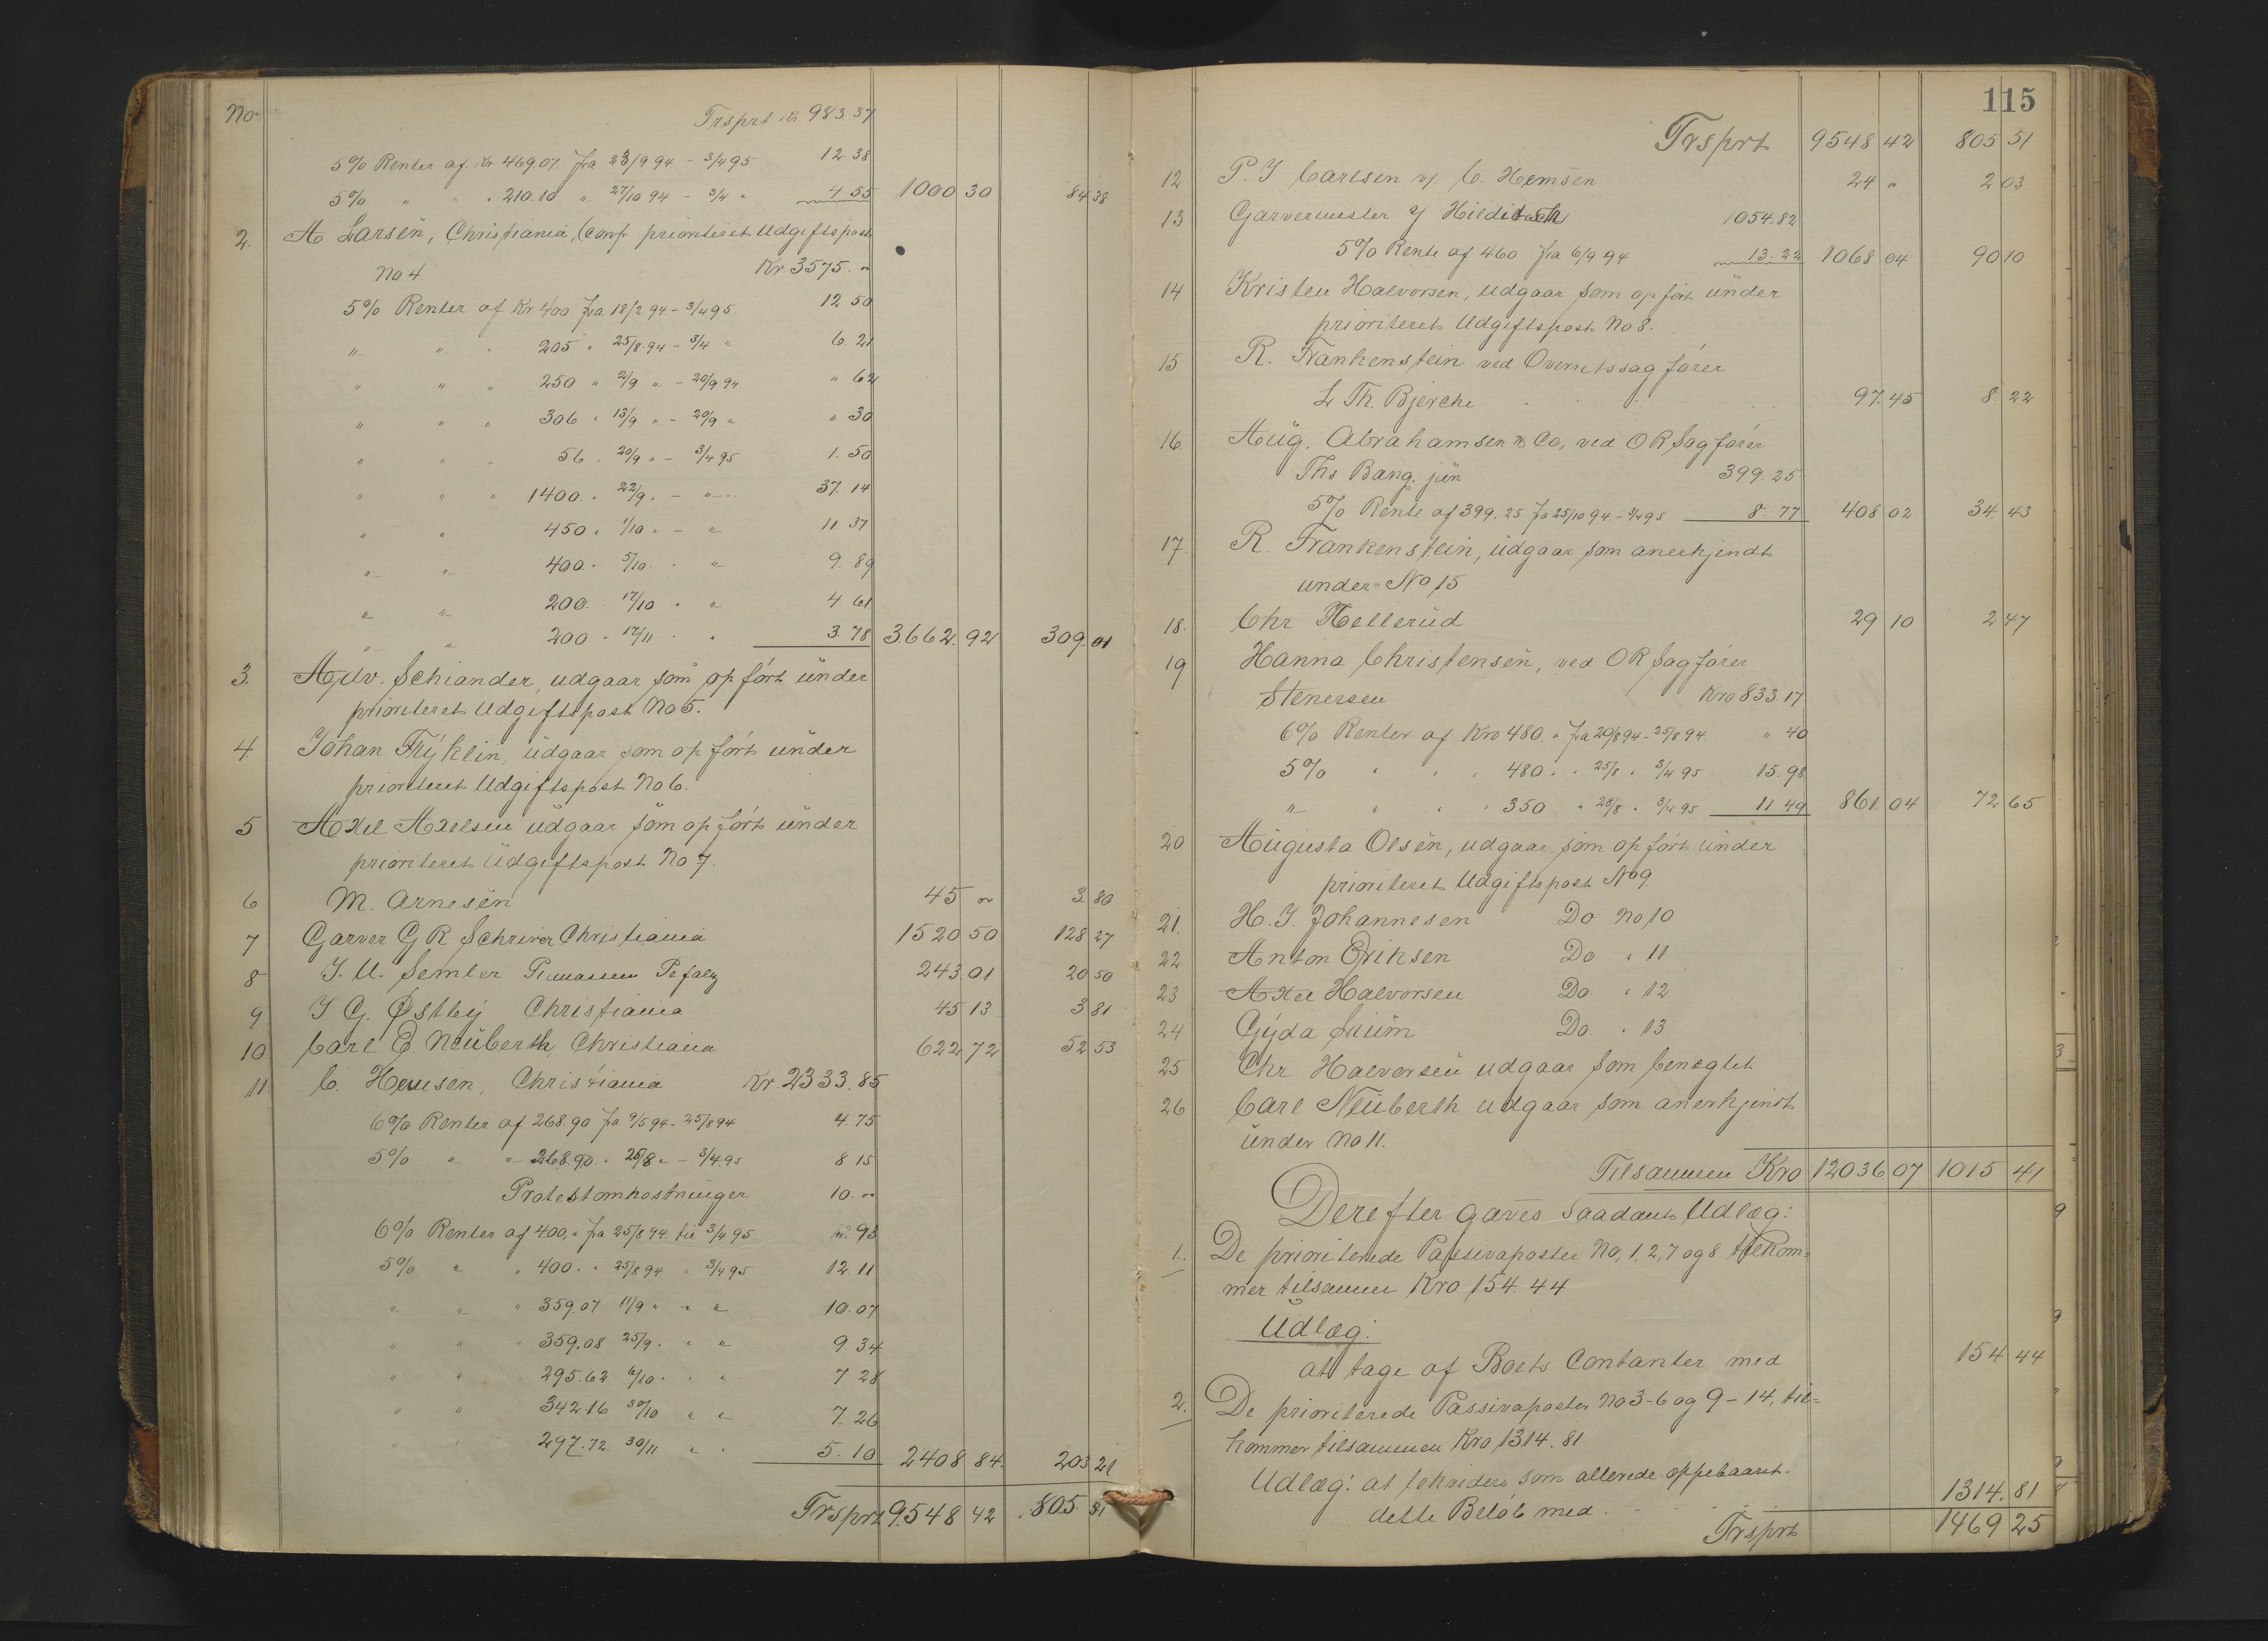 No
Trsprt Kr 983.37
5% Renter af Kr 469.07 fra 23/9 94 - 3/4 95 12 38
5% " " " 210.10 " 27/10 94 - 3/4 " 4 55 1000 30 84 38
2. A Larsen, Christiania, (conf. prioriteret Udgiftspost
No 4 Kr. 3575. "
5% Renter af Kr 400 fra 18/2 94 - 3/4 95 12 50
" " " 205 " 25/8 94 - 3/4 " 6 21
" " " 250 " 2/9 " - 20/9 94 " 62
" " " 306 " 13/9 " - 20/9 " " 30
" " " 56 " 20/9 " - 3/4 95 1. 50
" " " 1400. " 22/9 " - " 37. 14
" " 450 " 1/10 " - " 11 37
" " 400. " 5/10 " " 9. 89
" " 200. 17/10 " " 4 61
" " 200 " 17/11 " " 3. 78 3.662. 92 309. 01
3. Adv. Schiander, udgaar som opført under
prioriteret Udgiftspost No 5.
4. Johan Fryklin, udgaar som opført under
prioriteret Udgiftspost No 6.
5 Axel Axelsen udgaar som opført under
prioriteret Udgiftspost No 7.
6 M. Arnesen 45 " 3 80
7 Garver G R Schriver Christiania 1520 50 128 27
8 J. U. Semler 243 01 20 50
9 J G. Østby Christiania 45 13 3 81
10 Carl E Neuberth, Christiania 622 72 52 53
11 C. Hemsen, Christiania Kr. 2333. 85
6% Renter af 268.90 fra 9/5 94 - 25/8 94 4. 75
5% " " 268.90. " 25/8 " - 3/4 95 8 15
Protestomkostninger 10. "
6% Renter af 400. " fra 25/8 94. til 3/4 95 93
5% " " 400. " 25/8 94 " 3/4 95 12. 11
" " " 359.07 11/9 " " " 10. 07
" " " 359.08 25/9 " " " 9. 34
" " 295.62 6/10 " " " 7 28
" " 342.16 30/10 " " 7. 26
" " 297.72. 30/11 " " 5. 10 2408 84. 203 21
Trsprt 9.548 42 805 51
115
Trsprt 9548 42 805 51
12 P. J Carlsen v/ C. Hemsen 24 " 2 03
13 Garvermester Hilditsch 1054.82
5% Rente af 460 fra 6/9 94 13. 22 1068 04 90 10
14 Kristen Halvorsen, udgaar som opført under
prioriteret Udgiftspost No 8.
15 R. Frankenstein ved Overretssagfører
L Th. Bjercke 97. 45 8. 22
16. Aug. Abrahamsen & Co, ved O R Sagfører
Ths Bang jun 399. 25
5% Rente af 399. 25 fra 25/10 94. - 3/4 95 8. 77 408 02 34. 43
17. R. Frankenstein, udgaar som anerkjendt
under No 15
18. Chr Hellerud 29 10 2 47
19 Hanna Christensen, ved O R Sagfører
Stenersen Kro 833 17
6% Renter af Kro 480. " fra 20/8 94 - 25/8 94 " 40
5% " " " 480. " 25/8 " 3/4 95 15. 98
" " " " 350 " 28/8 " 3/4 95 11 49 861 04 72 65
20 Augusta Olsen, udgaar som opført under
prioriteret Udgiftspost No 9
21. H. J. Johannesen Do No 10
22 Anton Eriksen Do " 11
23 Axel Halvorsen Do " 12
24 Gyda Do. " 13
25 Chr Halvorsen udgaar som benægtet
26 Carl Neuberth udgaar som anerkjendt
under No 11.
Tilsammen Kro 12036 07 1015 41
Derefter gaves saadant Udlæg:
1. De prioriterede Passivaposter No, 1, 2, 7 og 8 tilkom=
mer tilsammen Kro 154. 44
Udlæg:
at tage af Boets Contanter med 154 44
2. De prioriterede Passivaposter No 3-6 og 9-14, til=
kommer tilsammen Kro 1314. 81.
Udlæg: at som allerede oppebaaret
dette Beløb med 1314. 81
Trsprt 1469 25